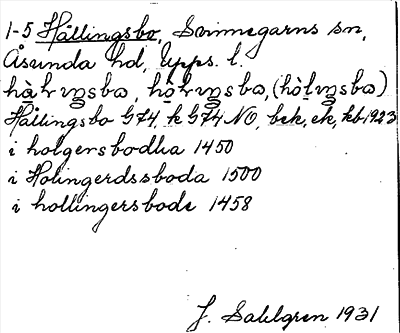 1-5 Hållingsbo, Svinnegarns sn,
Åsunda hd, Upps. l.
Hållingsbo G74, k G74 NO, bek, ek, kb 1923
i holgersbodha 1450
i Holingerdssboda 1500
i hollingersbode 1458
J. Sahlgren 1931